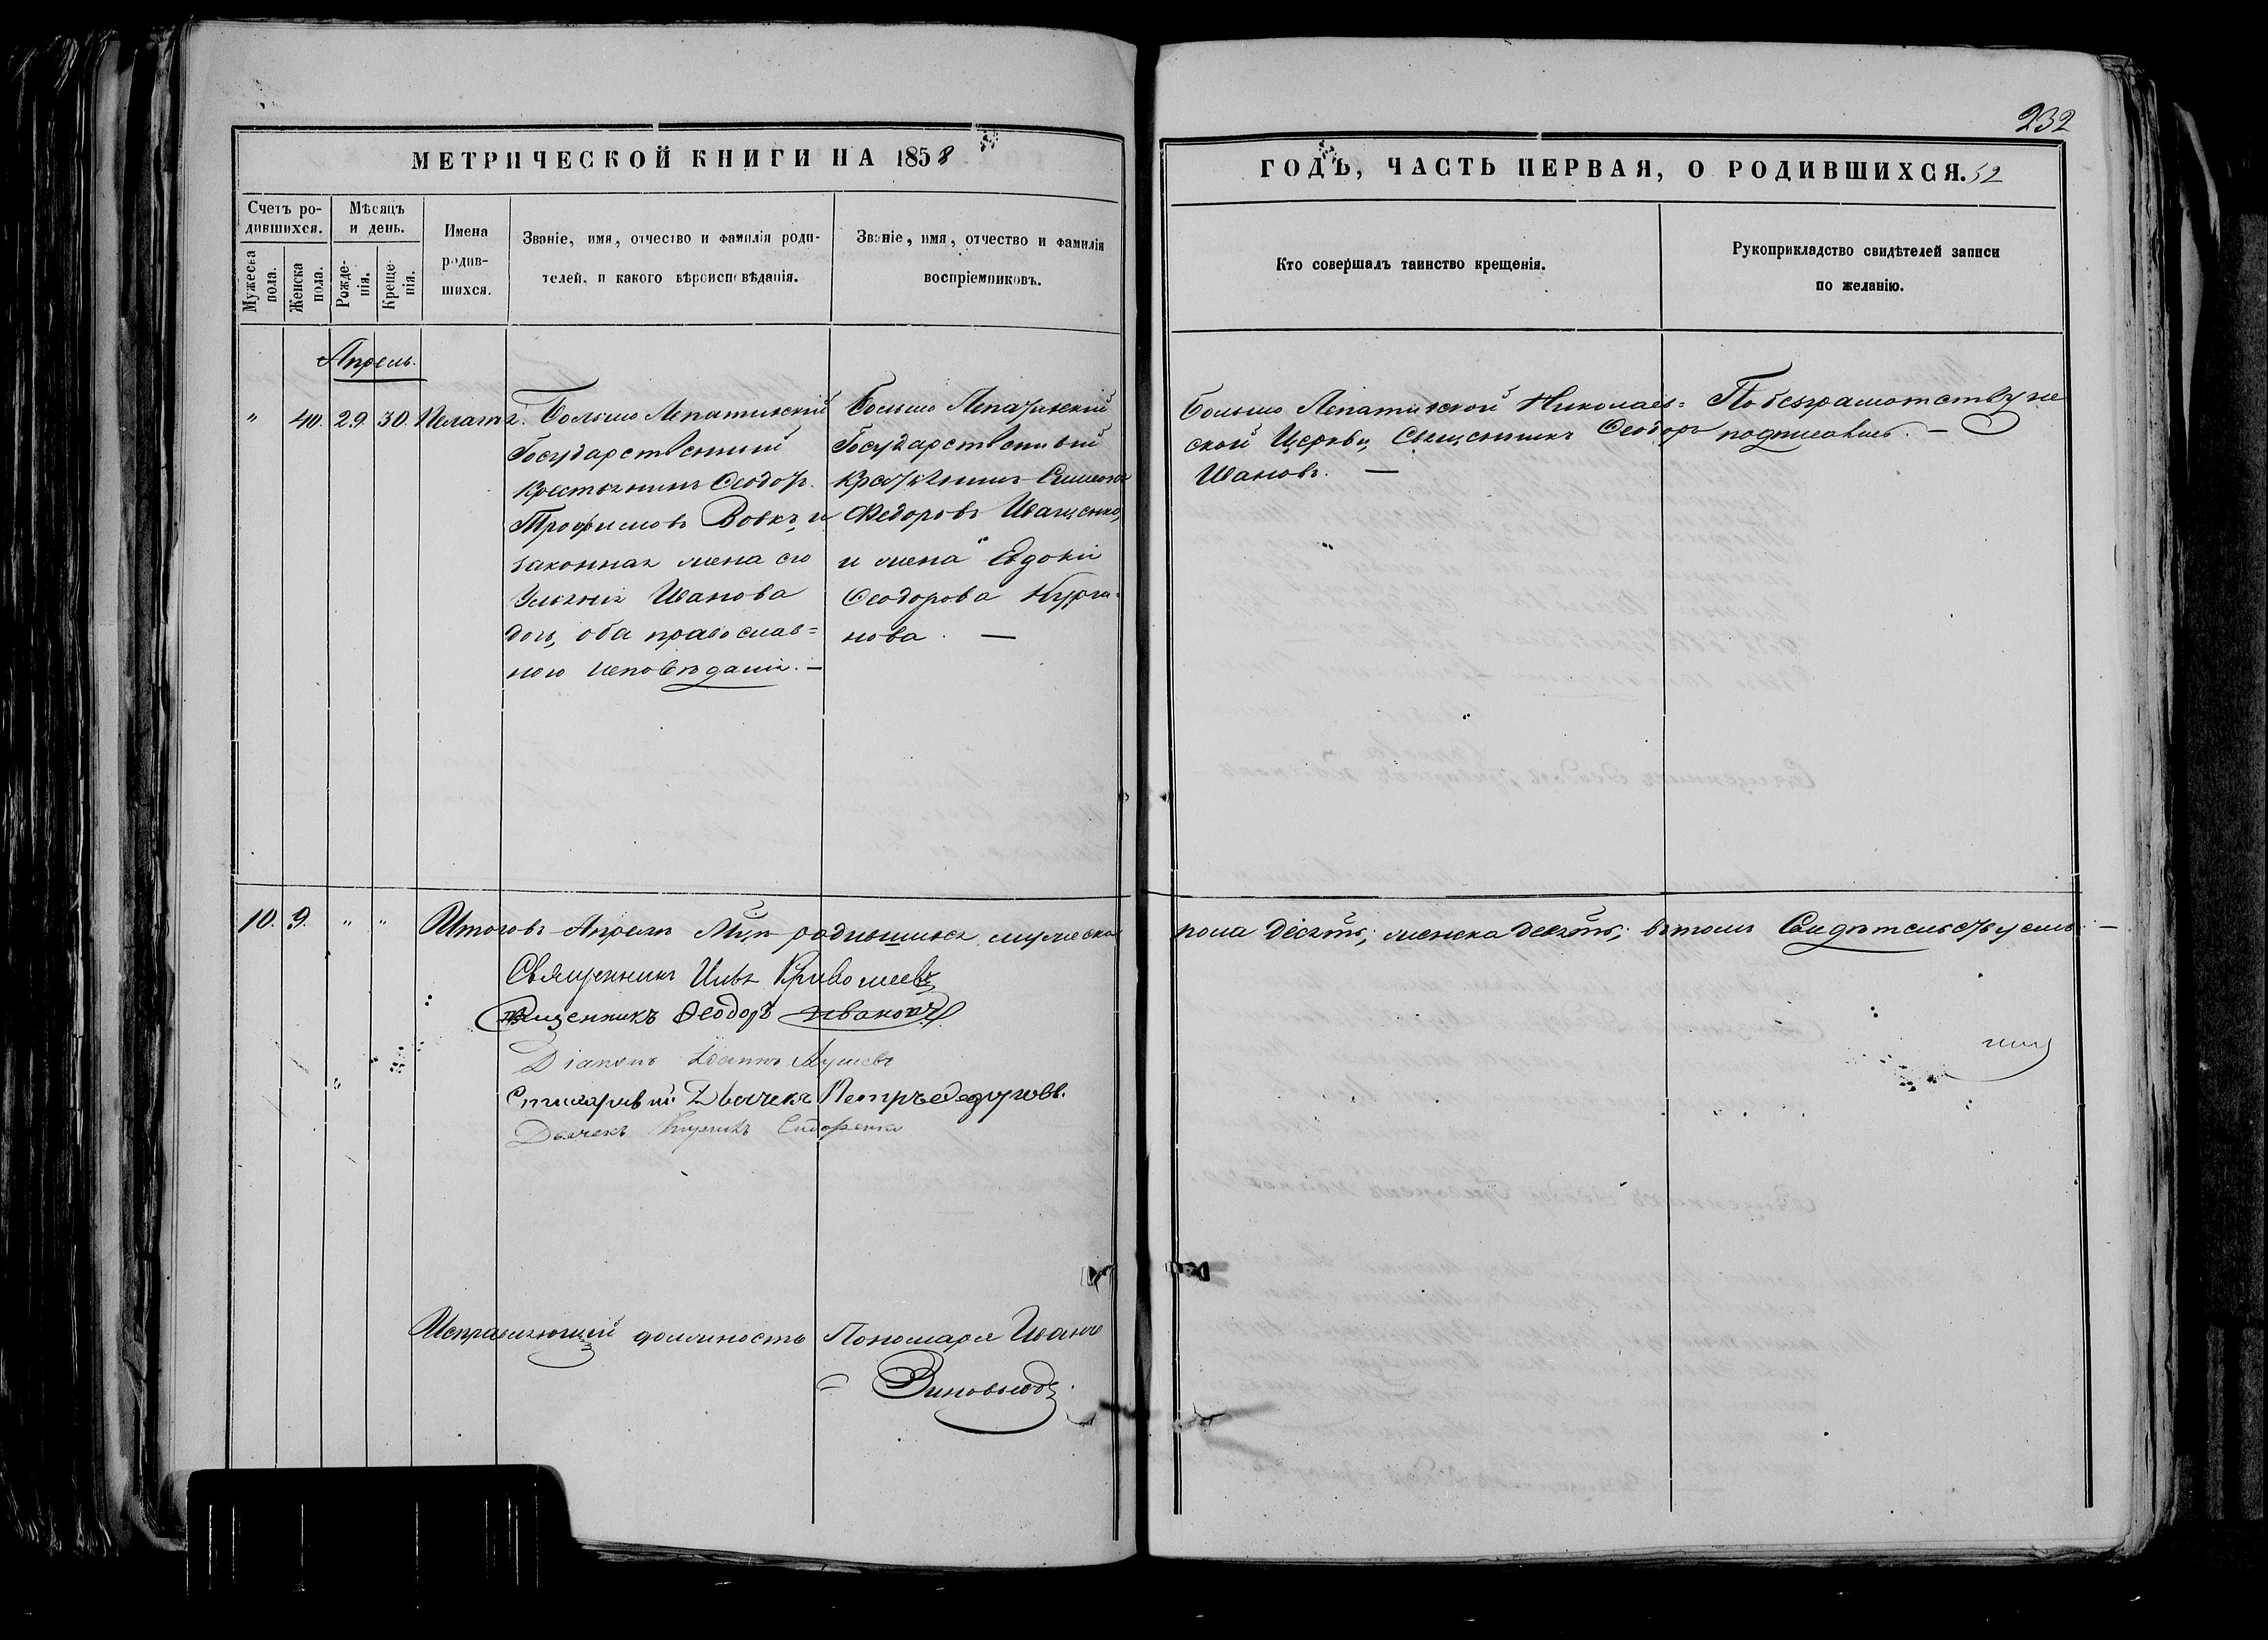 232
МЕТРИЧЕСКОЙ КНИГИ НА 1858
ГОДЪ, ЧАСТЬ ПЕРВАЯ, О РОДИВШИХСЯ. 52
Счетъ ро-
дившихся.
Мужеска пола.
Женска пола.
Мѣсяцъ
и день.
Рожде-
нія.
Креще-
нія.
Имена
родив-
шихся.
Званіе, имя, отчество и фамилія роди-
телей, и какого вѣроисповѣданія.
Званіе, имя, отчество и фамилія
воспріемниковъ.
Кто совершалъ таинство крещенія.
Рукоприкладство свидѣтелей записи
по желанію.
Апрель.
" 40. 29. 30.
Больше Лепатискій
Государственный
крестьянинъ Ѳеодоръ
Трофимовъ Вовкъ, и
законная жена его
Ульянія Иванова
дочь, оба православ=
ного исповѣданія. —
Больше Лепатискій
Государственный
крестьянинъ Симеонъ
Федоровъ Иващенко,
и жена Евдокія
Ѳеодорова Курга=
нова. —
Больше Лепатиской Николаев=
ской Церкви Священникъ Ѳеодоръ
Ивановъ. —
По безграмотству не
подписались. —
10. 9. " "
Итого въ Апрелѣ Мцѣ родившихся мужеска
пола десять; женска девять; въ томъ Свидѣтельствуемъ: —
Священникъ Илья Кривошеевъ
Священникъ Ѳеодоръ Ивановъ
Діаконъ Іоаннъ
Стихарный Дьячекъ Петръ
Дьячекъ Сидоренко
Исправляющій должность Пономаря Иванъ